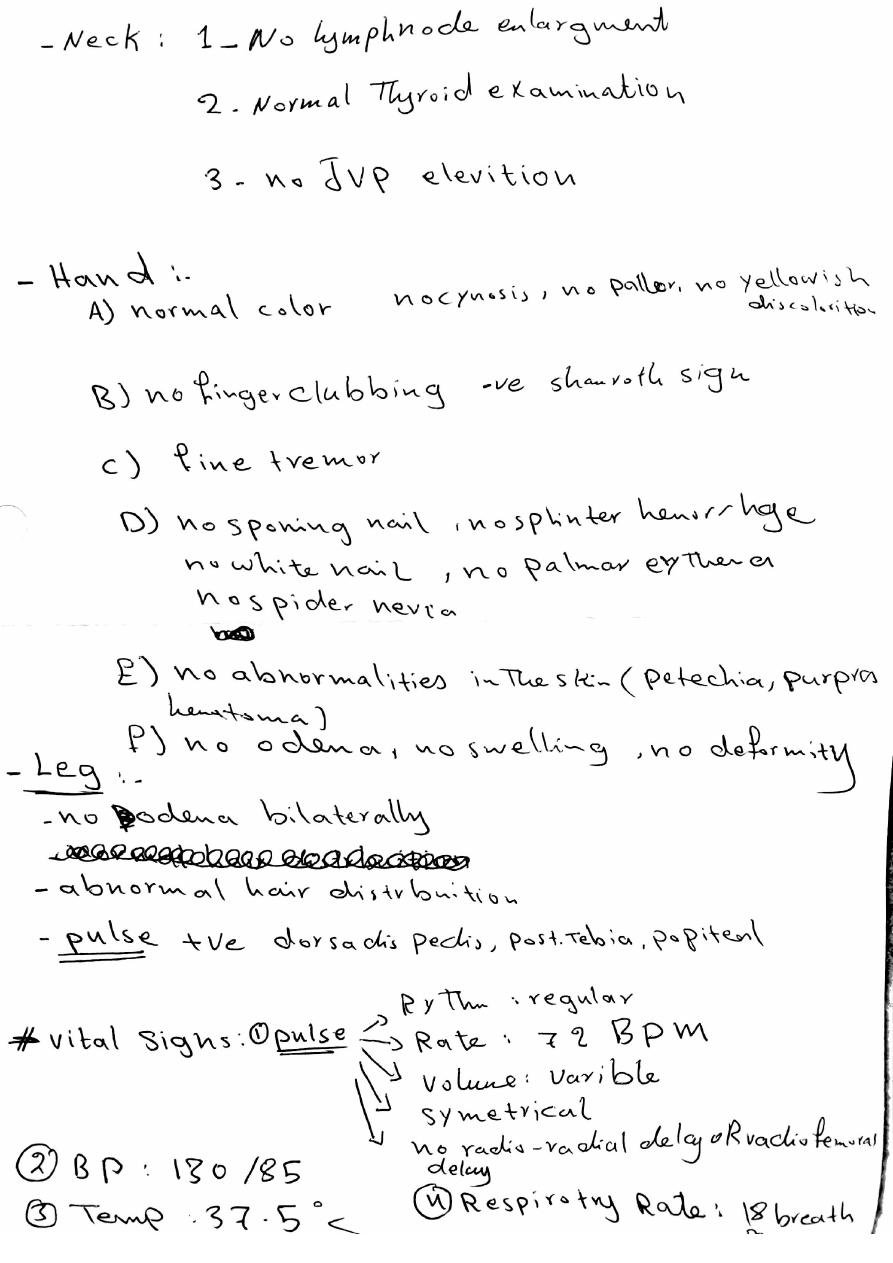 - Neck : 1 - No lymphnode enlargment
2 - Normal Thyroid examination
3 - no JVP elevition
- Hand :-
A) normal color nocynosis, no pallor, no yellowish
discolorition
B) no finger clubbing -ve shamroth sign
C) fine tremor
D) no sponing nail, no splinter hemorrhge
no white nail, no palmar erythema
no spider nevia
E) no abnormalities in the skin (petechia, purpra
hematoma)
F) no odema, no swelling, no deformity
- Leg :-
- no odema bilaterally
- abnormal hair distrbuition
- pulse +ve dorsadis pedis, post. Tebia, popiteal
# Vital Signs: ① pulse → Rythm : regular
→ Rate : 72 BPM
→ Volume : varible
→ symetrical
→ no radio-radial delay oR radio femoral
delay
② BP : 130/85
③ Temp : 37.5 °c
④ Respirotry Rate : 18 breath